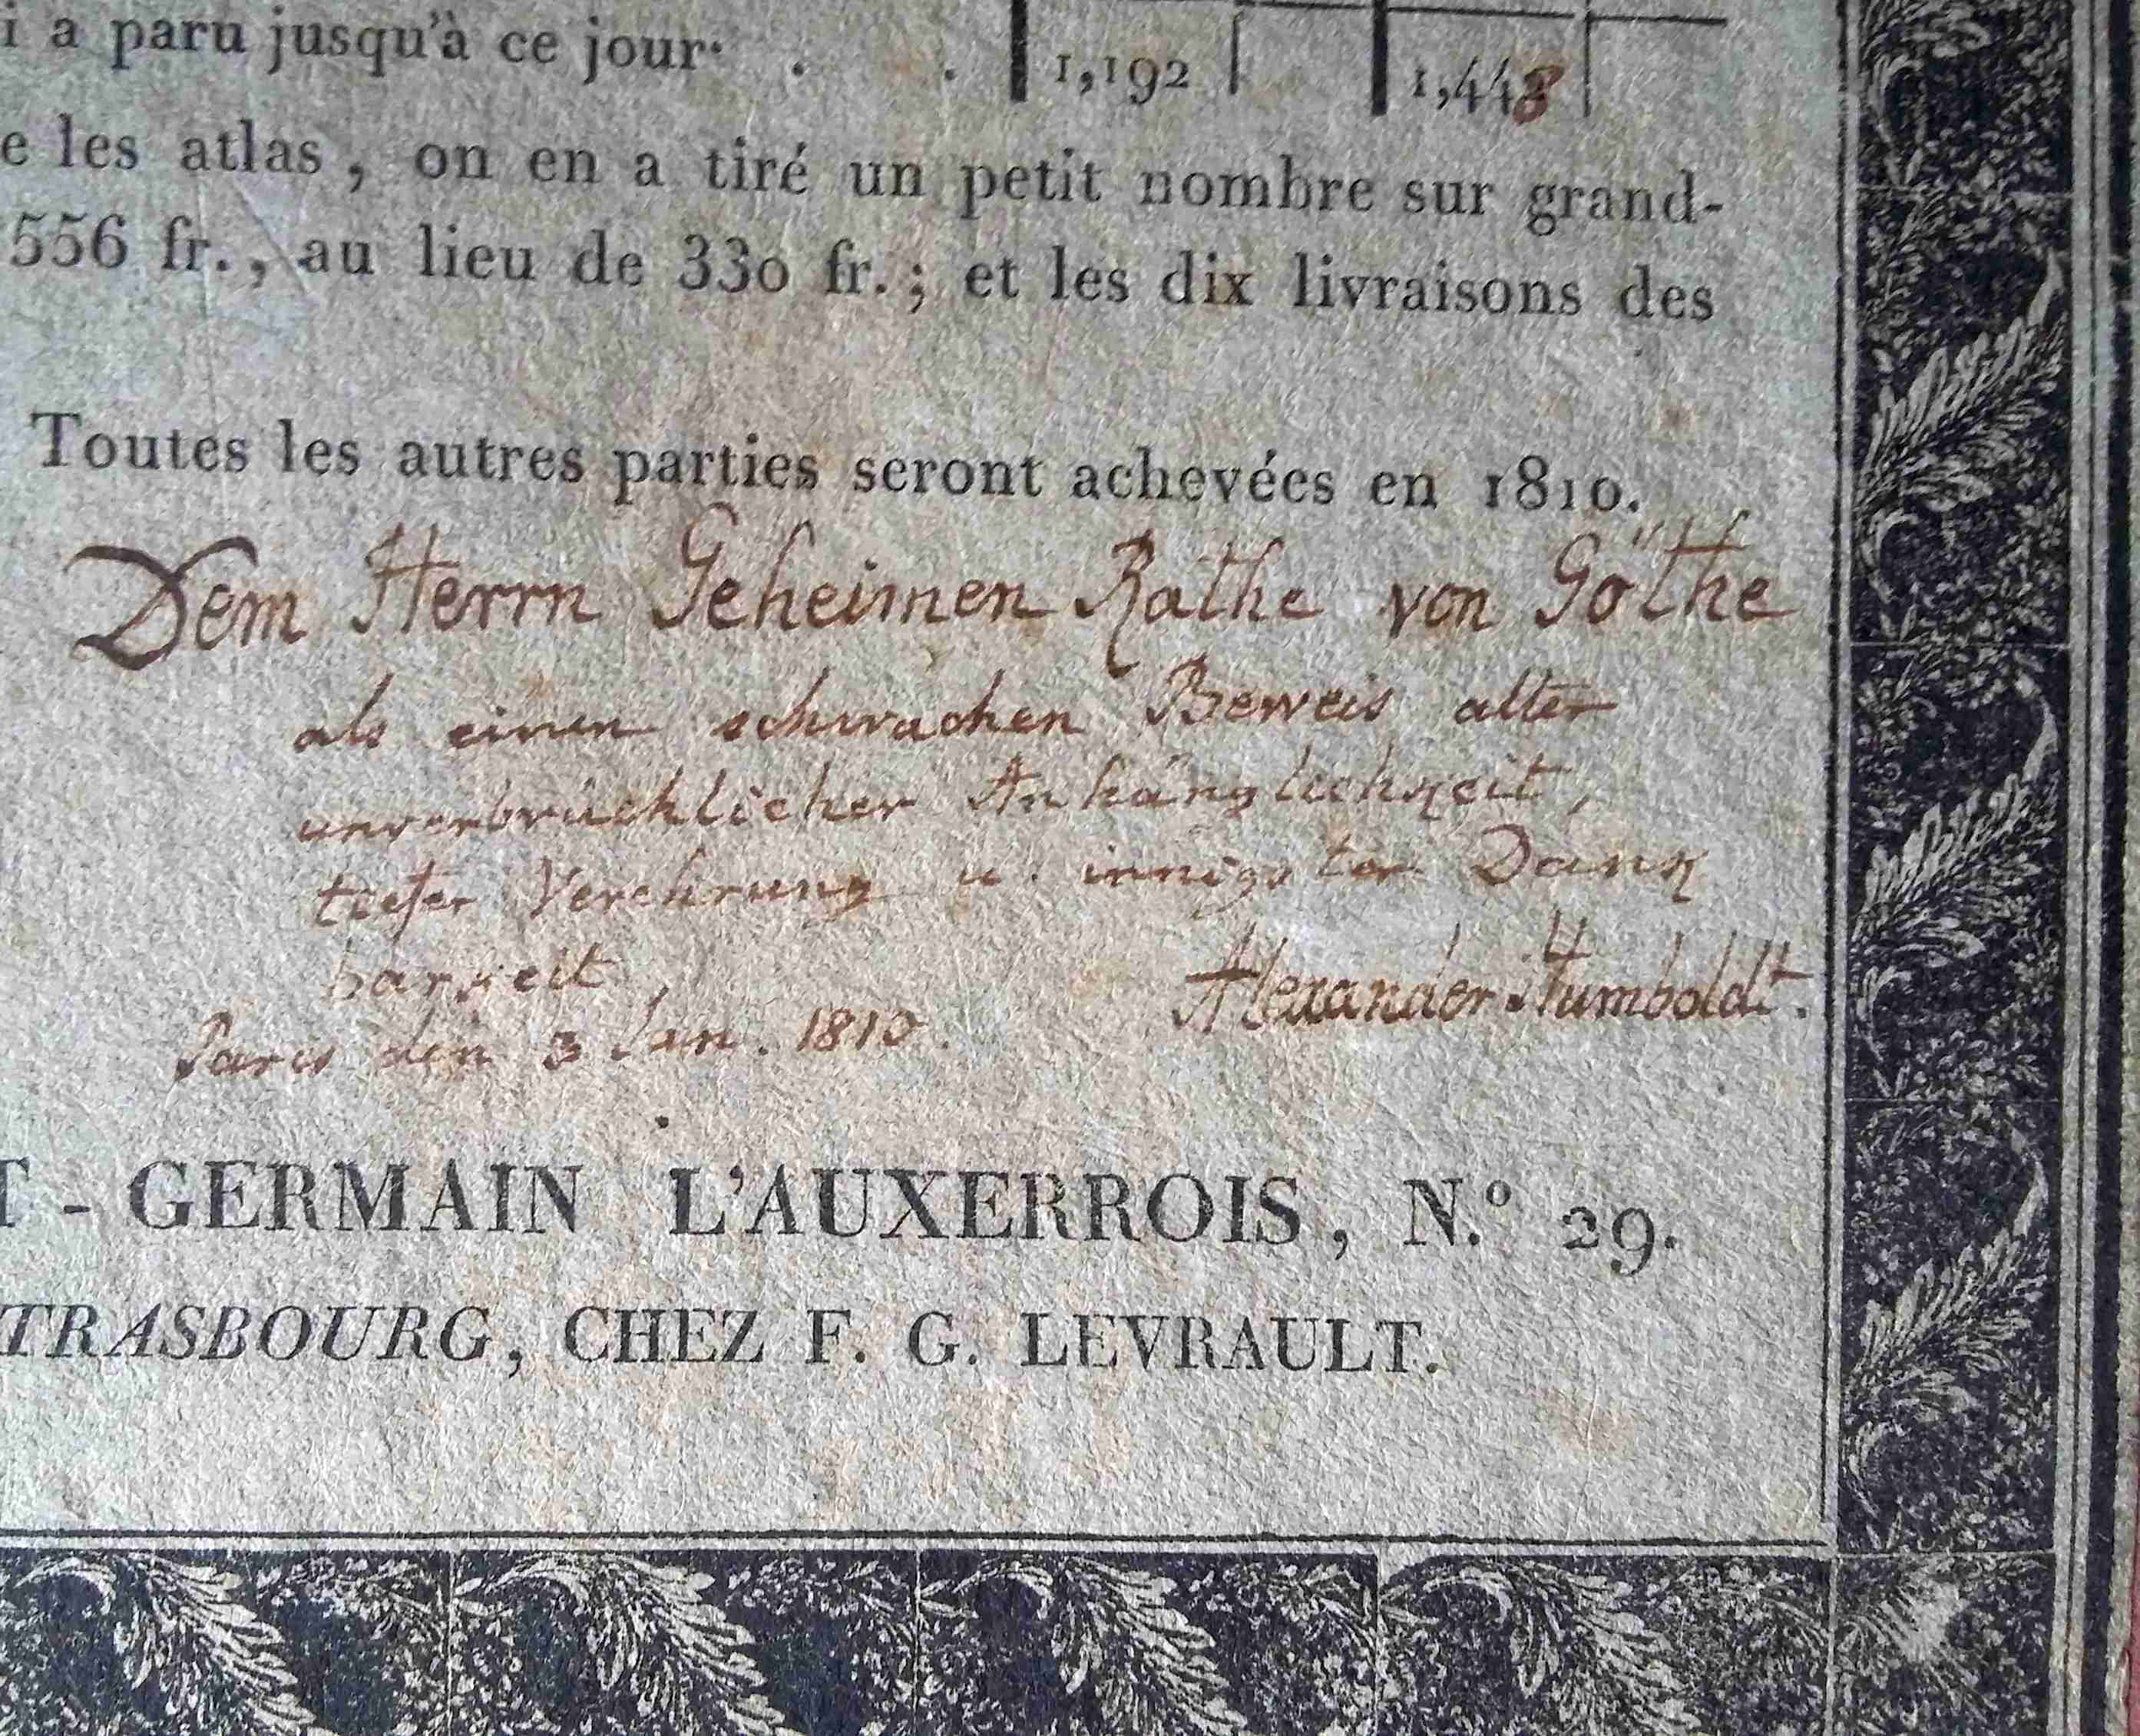 i a paru jusqu'à ce jour. . . 1,192 1,448
e les atlas, on en a tiré un petit nombre sur grand-
556 fr., au lieu de 330 fr.; et les dix livraisons des
Toutes les autres parties seront achevées en 1810.
Dem Herrn Geheimen Rathe von Göthe
als einen schwachen Beweis alter
unverbrüchlicher Anhänglichkeit,
tiefer Verehrung u. innigster Dank
barkeit,
Alexander Humboldt.
Paris den 3 Jan. 1810.
T-GERMAIN L'AUXERROIS, N.º 29.
TRASBOURG, CHEZ F. G. LEVRAULT.